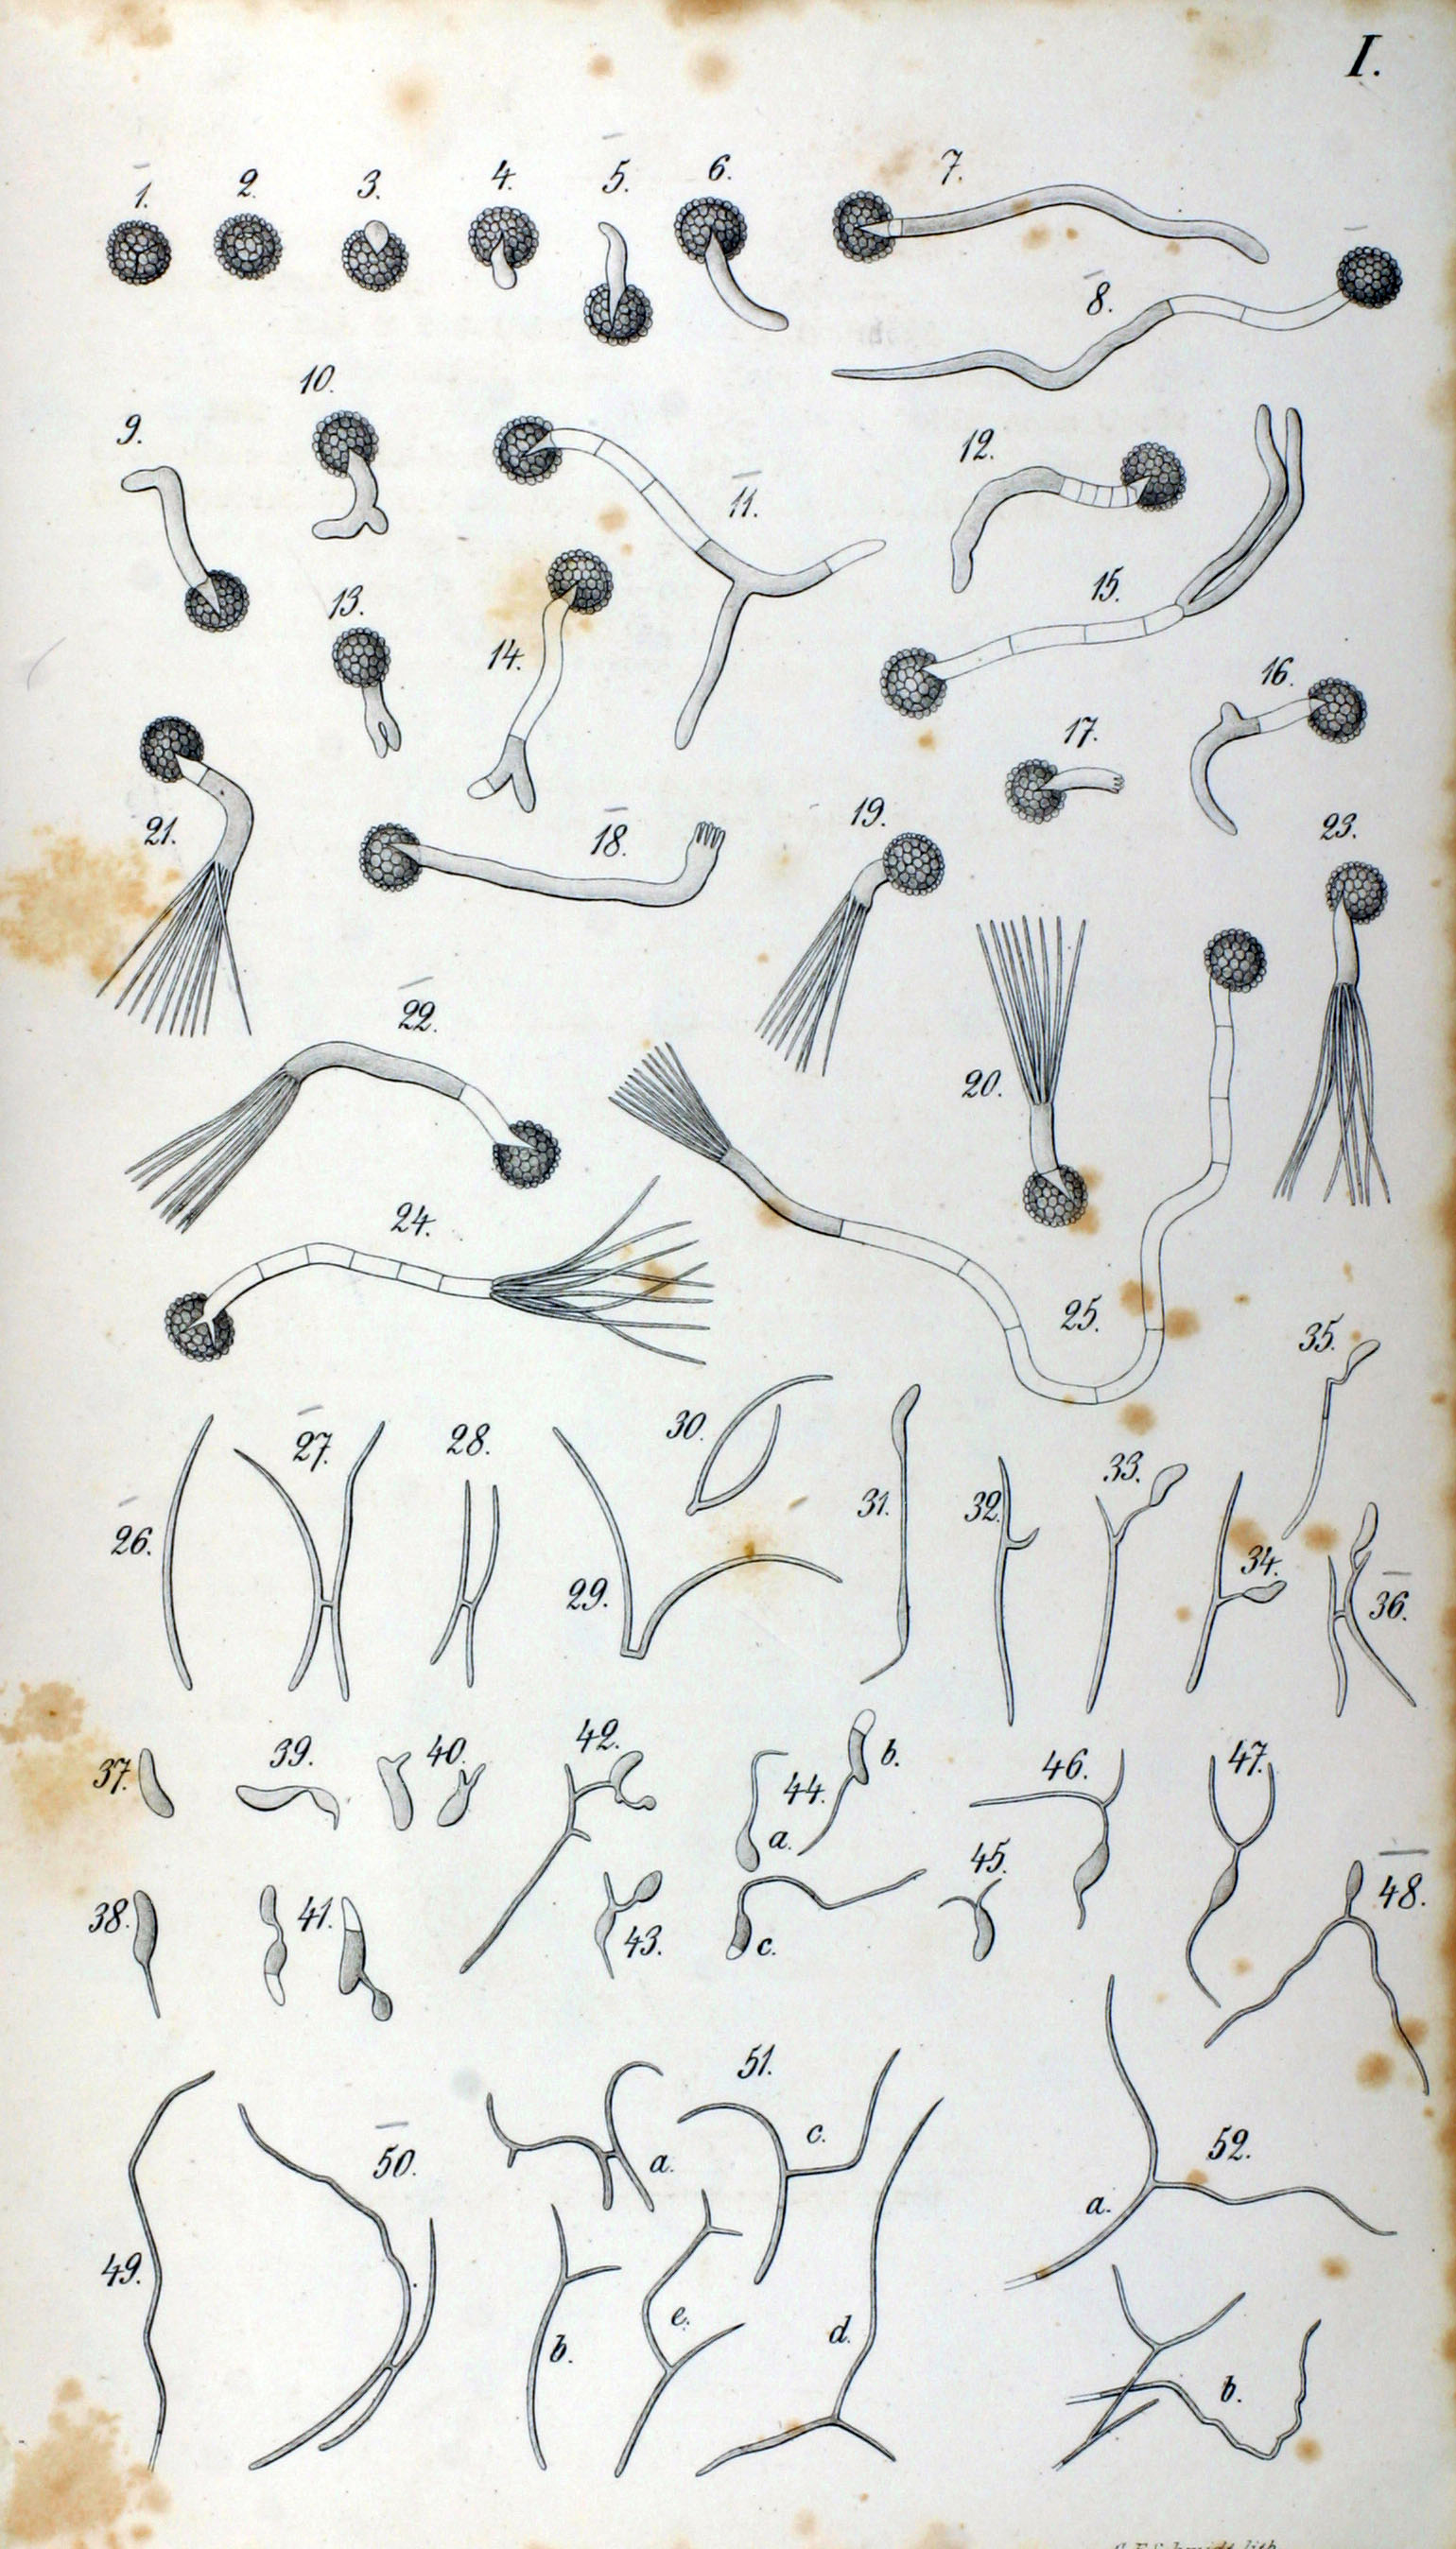 I.
1.
2.
3.
4.
5.
6.
7.
8.
9.
10.
11.
12.
13.
14.
15.
16.
17.
18.
19.
20.
21.
22.
23.
24.
25.
26.
27.
28.
29.
30.
31.
32.
33.
34.
35.
36.
37.
38.
39.
40.
41.
42.
43.
44.
a.
b.
c.
45.
46.
47.
48.
49.
50.
51.
a.
b.
c.
d.
e.
52.
a.
b.